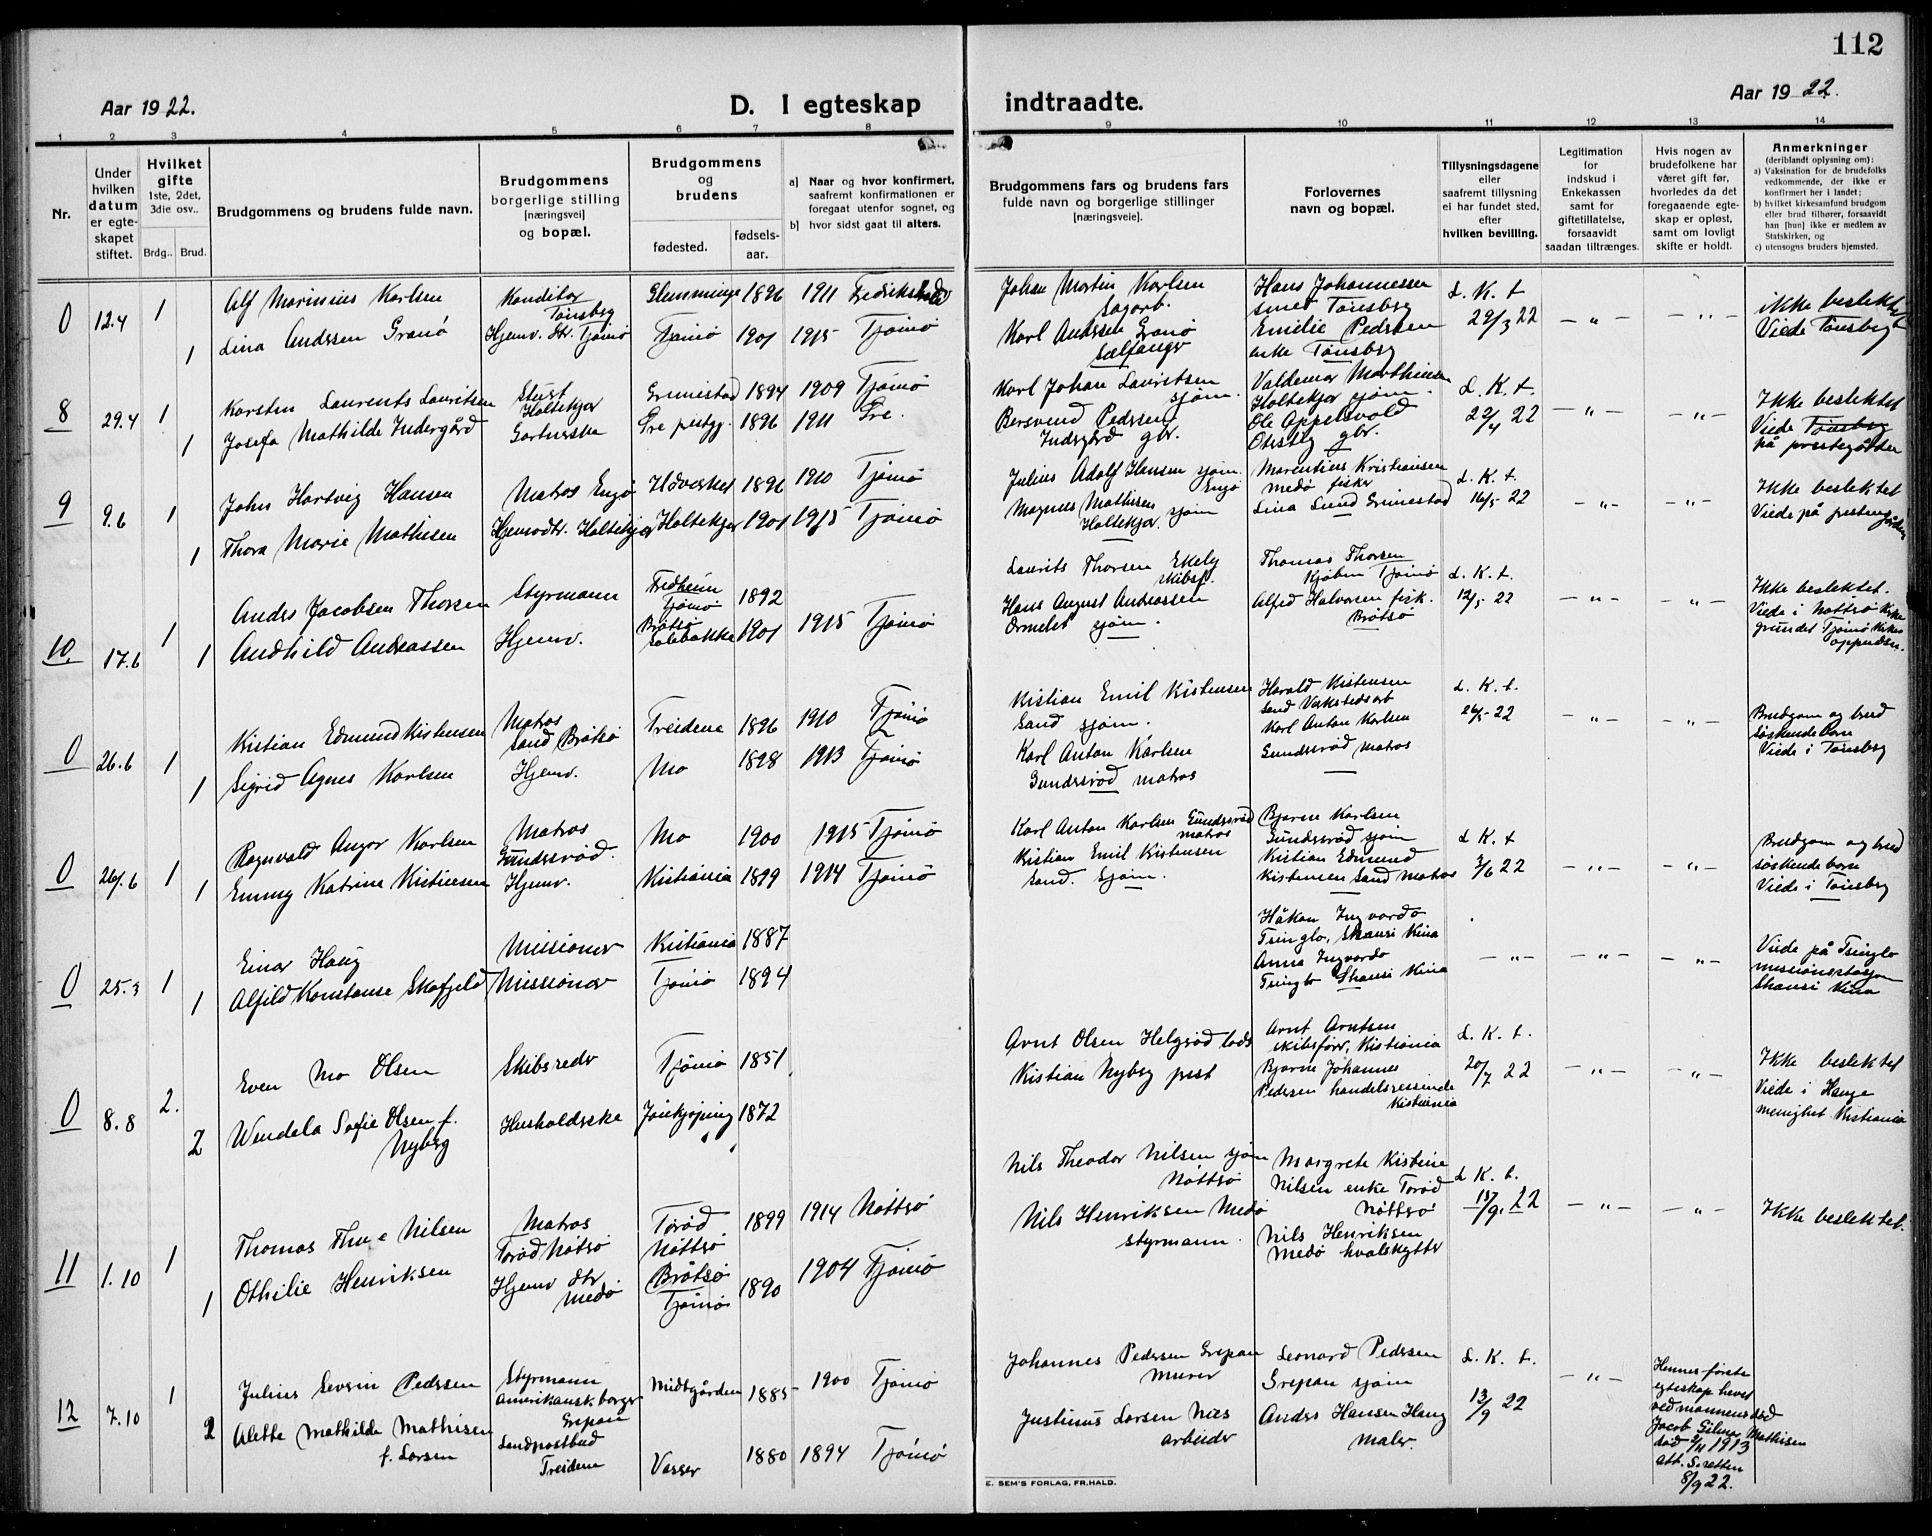 112
Aar 1922.
D. I egteskap indtraadte.
Aar 1922.
1 2 3 4 5 6 7 8 9 10 11 12 13 14
Nr.
Under hvilken datum er egteskapet stiftet.
Hvilket gifte 1ste, 2det, 3die osv..
Brdg.. Brud.
Brudgommens og brudens fulde navn.
Brudgommens borgerlige stilling [næringsvei] og bopæl.
Brudgommens og brudens
fødested. fødsels-aar.
a) Naar og hvor konfirmert, saafremt konfirmationen er foregaat utenfor sognet, og
b) hvor sidst gaat til alters.
Brudgommens fars og brudens fars fulde navn og borgerlige stillinger [næringsveie].
Forlovernes navn og bopæl.
Tillysningsdagene eller saafremt tillysning ei har fundet sted, efter hvilken bevilling.
Legitimation for indskud i Enkekassen samt for giftetillatelse, forsaavidt saadan tiltrænges.
Hvis nogen av brudefolkene har været gift før, hvorledes da det foregaaende egteskap er opløst, samt om lovligt skifte er holdt.
Anmerkninger (deriblandt oplysning om):
a) Vaksination for de brudefolks vedkommende, der ikke er konfirmert her i landet;
b) hvilket kirkesamfund brudgom eller brud tilhører, forsaavidt han [hun] ikke er medlem av Statskirken, og
c) utensogns bruders hjemsted.
0 12.4 1 Alf Marinius Karlsen Konditor Tønsberg Glemminge 1896 1911 Fredrikstad
1 Lina Andersen Granø Hjemv. dtr. Tjømø Tjømø 1901 1915 Tjømø
Johan Martin Karlsen sagarb.
Karl Andersen Granø sælfanger
Hans Johannessen smed Tønsberg
Emilie Pedersen enke Tønsberg
L. K. t. 29/3 22 — „ — — „ —
ikke beslektet Viede Tønsberg
8 29.4 1 Karsten Laurents Lauritsen Stuert Holtekjær Grimestad 1894 1909 Tjømø
1 Josefa Mathilde Indergård Gartnerske Øre prstgj. 1896 1911 Øre.
Karl Johan Lauritsen sjøm.
Bersvend Pedersen Indergård gbr.
Valdemar Marthinsen Holtekjær sjøm.
Ole Appelsvold Otersbg gbr.
L. K. t. 22/4 22 — „ — — „ —
Ikke beslektet Viede Tønsberg på prestegården
9 9.6 1 John Hartvig Hansen Matros Engø Hdverket 1896 1910 Tjømø
1 Thora Marie Mathisen Hjemvdtr. Holtekjær Holtekjær 1901 1915 Tjømø
Julius Adolf Hansen sjøm. Engø
Magnus Mathisen Holtekjær. sjøm
Marentius Kristiansen Medø fisker
Lina Lund Grimestad
L. K. t. 16/5 22 — „ — — „ —
Ikke beslektet Viede på prestengården
10. 17.6 1 Anders Jacobsen Thorsen Styrmann Fredheim Tjømø 1892
1 Audhild Andreassen Hjemv. Brøtsø Solebakke 1901 1915 Tjømø
Laurits Thorsen Ekely skibsf.
Hans August Andreassen Ormelet sjøm.
Thomas Thorsen Kjøbm Tjømø
Alfred Halvorsen fisk. Brøtsø
L. K. t. 12/5 22 — „ — — „ —
Ikke beslektet. Viede i Nøttrø Kirke grundet Tjømø Kirkes oppudsn.
0 26.6 1 Kristian Edmund Kristensen Matros Sand Brøtsø Treidene 1896 1910 Tjømø
1 Sigrid Agnes Karlsen Hjemv. Mo 1898 1913 Tjømø
Kristian Emil Kristensen Sand sjøm.
Karl Anton Karlsen Gundersrød matros
Harald Kristensen Sand Verkstedsarb
Karl Anton Karlsen Gundersrød matros
L. K. t. 26/5 22 — „ — — „ —
Brudgom og brud søskendebarn Viede i Tønsberg
0 26.6 1 Ragnvald Angar Karlsen Matros Gundersrød. Mo 1900 1915 Tjømø
1 Emmy Katrine Kristensen Hjemv. Kristiania 1899 1914 Tjømø
Karl Anton Karlsen Gundersrød matros
Kristian Emil Kristensen Sand. Sjøm.
Bjarne Karlsen Gundersrød sjøm
Kristian Edmund Kristensen Sand matros
L. K. t. 3/6 22 — „ — — „ —
Brudgom og brud søskendebarn Viede i Tønsberg
0 25.3 1 Einar Haug Missionær Kristiania 1887
1 Alfild Konstanse Skafjeld Missionær Tjømø 1894
Håkon Ingvordo Tsinglo, Shansi Kina
Anna Ingvordo Tsinglo Shansi Kina
— „ — — „ — — „ —
Viede på Tsinglo missionsstasjon Shansi Kina
0 8.8 2. Even Mo Olsen Skibsreder Tjømø 1851
2 Wendela Sofie Olsen f. Nyberg Husholderske Jønkjøping 1872
Arnt Olsen Helgerød lods
Kristian Nyberg prest
Arnt Arntsen skibsfører, Kristiania
Bjarne Johannes Pedersen handelsreisende Kristiania
L. K. t. 20/7 22 — „ — — „ —
Ikke beslektet Viede i Hauge menighet Kristiania
11 1.10 1 Thomas Thue Nilsen Matros Torød Nøtsø Torød Nøttsø 1899 1914 Nøttrø
1 Othilie Henriksen Hjemv dtr Medø Brøtsø Tjømø 1890 1904 Tjømø
Nils Theodor Nilsen sjøm Nøttrø
Nils Henriksen Medø styrmann.
Margrete Kristine Nilsen enke Torød Nøttsø
Nils Henriksen Medø hvalskytter
L. K. t. 17/9. 22 — „ — — „ —
Ikke beslektet.
12 7.10 1 Julius Severin Pedersen Styrmann Amerikansk borger Grepan Midtgården 1885 1900 Tjømø
2 Alette Mathilde Mathisen f. Larsen Landpostbud Treidene Vasser 1880 1894 Tjømø
Johannes Pedersen Grepan Murer
Justinus Larsen Nes arbeider
Leonard Pedersen Grepan sjøm
Anders Hansen Haug maler.
L. K. t. 13/9 22 — „ —
Hennes første egteskap hevet ved mannens død Jacob Gilmar Mathisen død 2/11 1913 att. S.retten 8/9 22.
E. SEM'S FORLAG, FR.HALD.